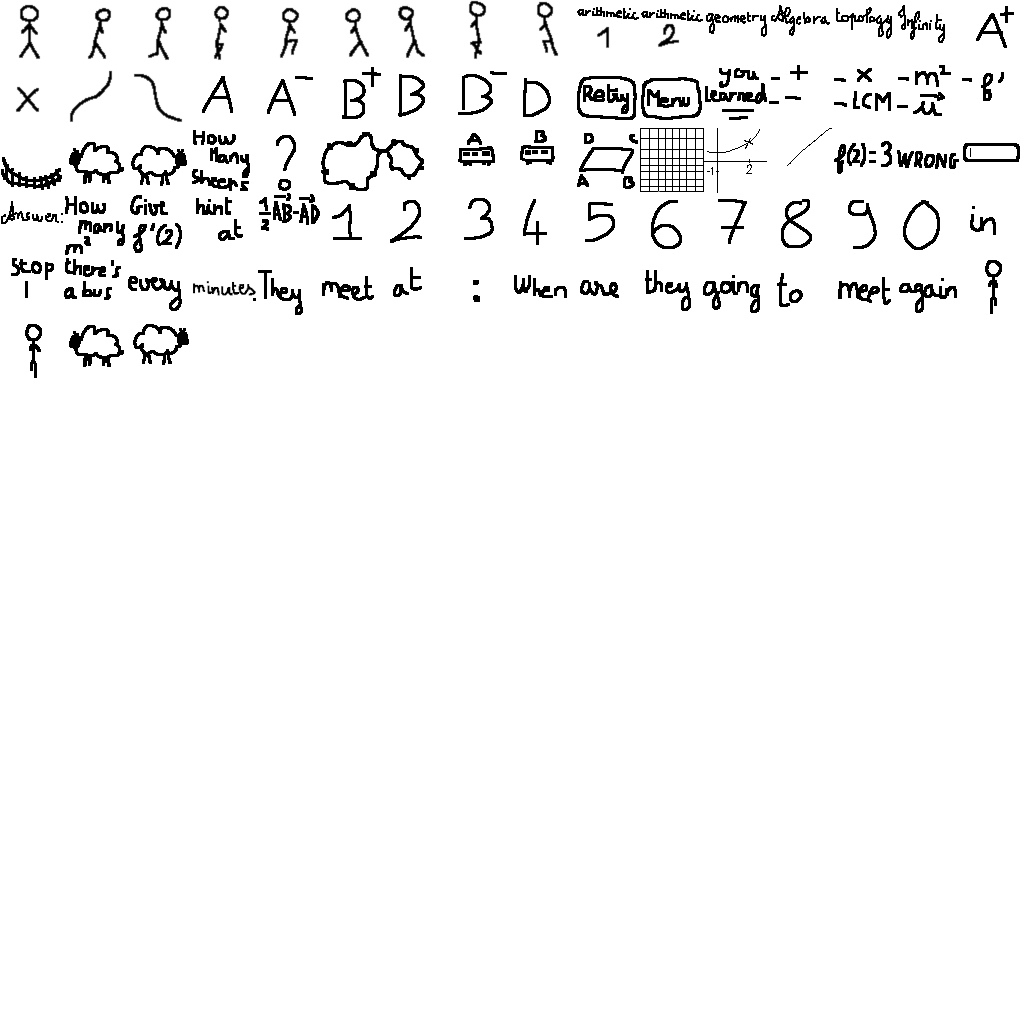 arithmetic arithmetic geometry Algebra topology Infinity A+
1 2
x A A- B+ B B- D Retry Menu you - + - x - m² - f'
learned - - - LCM - u
How Many Sheeps ? A B D C A B -1 2 f(2)=3 WRONG
Answer: How many m² Give f'(2) hint at 1/2 AB-AD 1 2 3 4 5 6 7 8 9 0 in
Stop 1 there's a bus every minutes. They meet at : When are they going to meet again